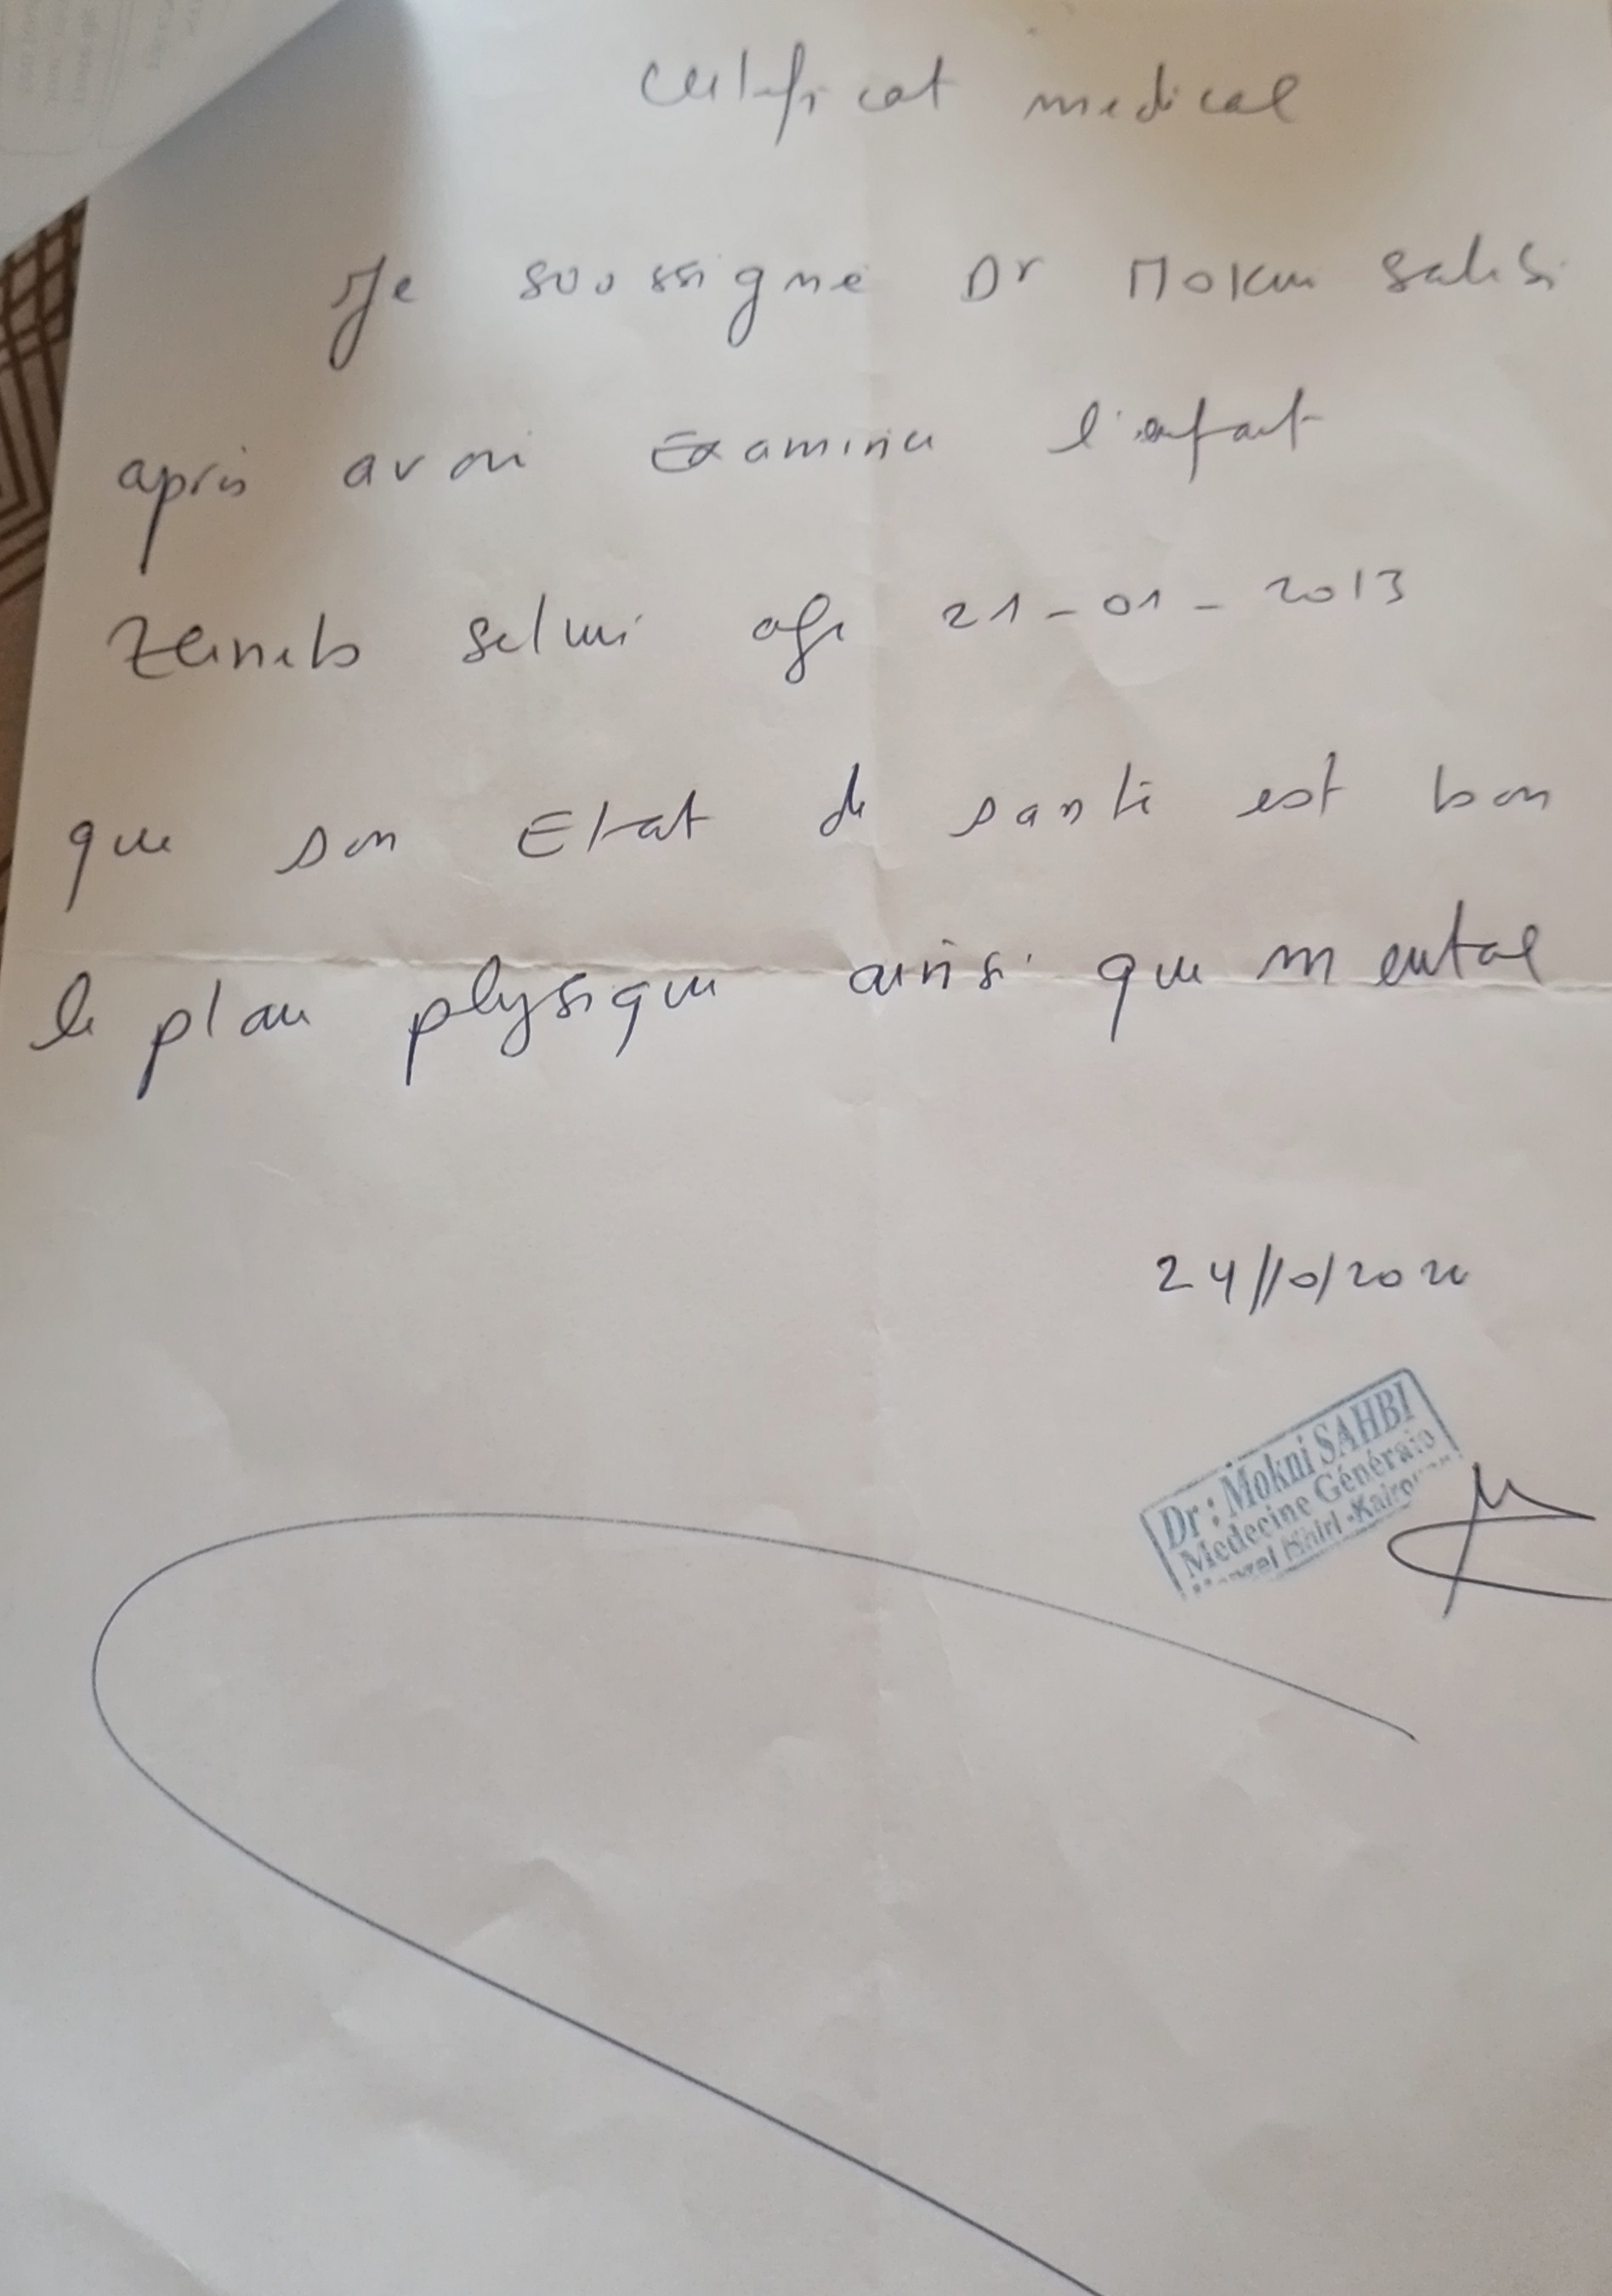 Certificat medical
Je soussigné Dr Mokni Sahbi
après avoir Examiner l'enfant
Zeineb Selmi age 21-01-2013
que son Etat de santé est bon
le plan physique ainsi que mental
24/10/20
Dr : Mokni SAHBI
Medecine Générale